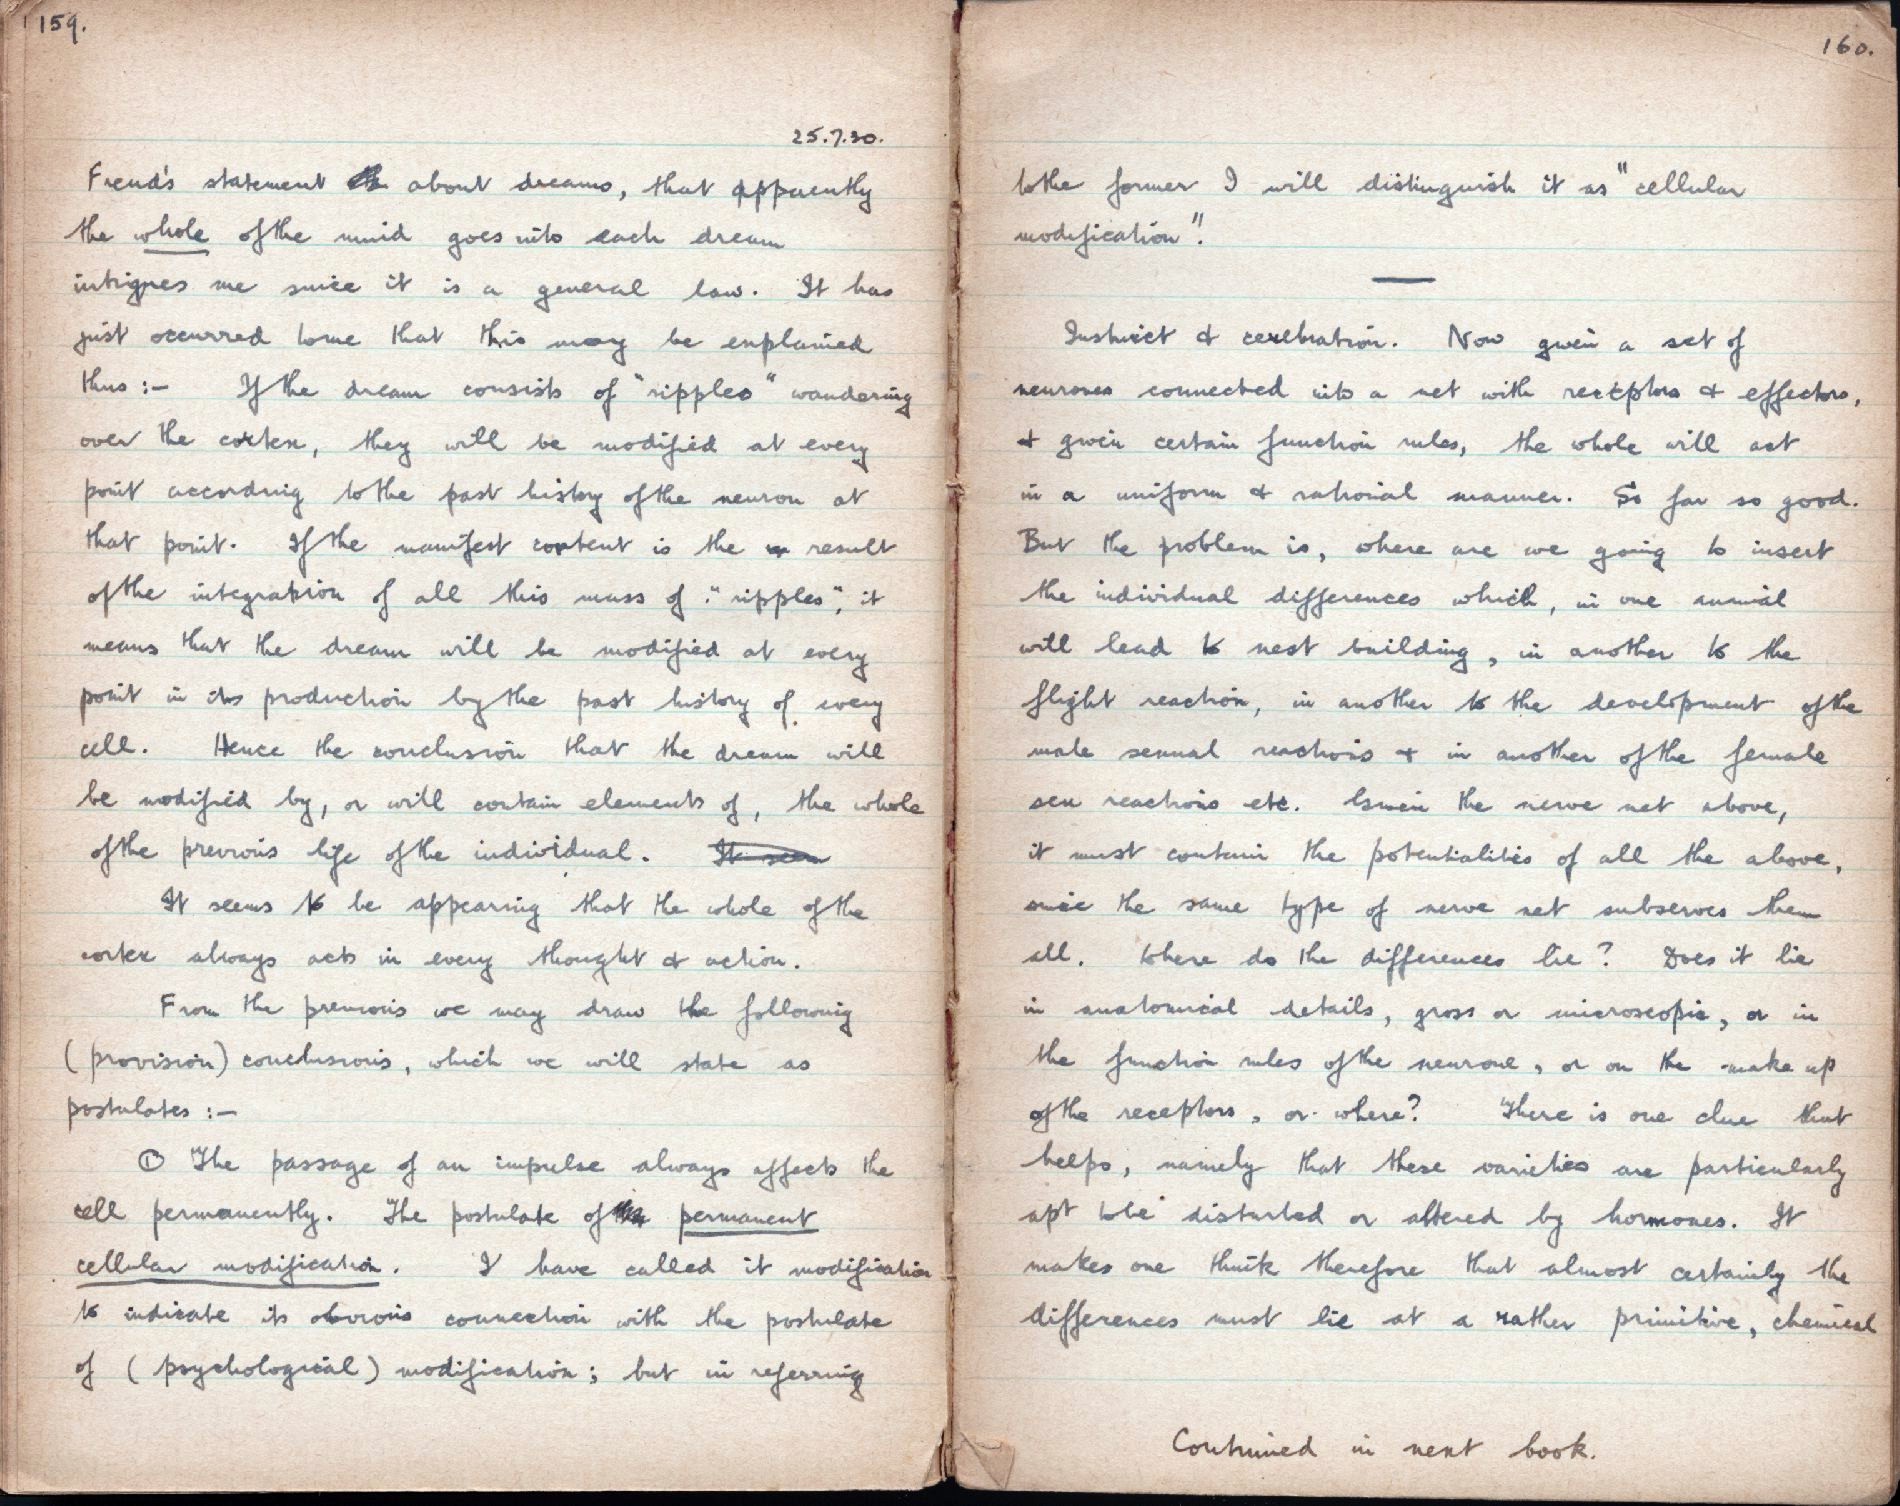 159.
25.7.30.
Freud's statement about dreams, that apparently
the whole of the mind goes into each dream
intrigues me since it is a general law. It has
just occurred to me that this may be explained
thus :— If the dream consists of "ripples" wandering
over the cortex, they will be modified at every
point according to the past history of the neuron at
that point. If the manifest content is the result
of the integration of all this mass of "ripples", it
means that the dream will be modified at every
point in its production by the past history of every
cell. Hence the conclusion that the dream will
be modified by, or will contain elements of, the whole
of the previous life of the individual. It seem
It seems to be appearing that the whole of the
cortex always acts in every thought & action.
From the previous we may draw the following
(provision) conclusions, which we will state as
postulates :—
① The passage of an impulse always affects the
cell permanently. The postulate of permanent
cellular modification. I have called it modification
to indicate its obvious connection with the postulate
of (psychological) modification; but in referring
160.
to the former I will distinguish it as "cellular
modification".
Instinct & cerebration. Now given a set of
neurones connected into a net with receptors & effectors,
& given certain function rules, the whole will act
in a uniform & rational manner. So far so good.
But the problem is, where are we going to insert
the individual differences which, in one animal
will lead to nest building, in another to the
flight reaction, in another to the development of the
male sexual reactions & in another of the female
sex reactions etc. Given the nerve net above,
it must contain the potentialities of all the above,
since the same type of nerve net subserves them
all. Where do the differences lie? Does it lie
in anatomical details, gross or microscopic, or in
the function rules of the neurone, or on the make up
of the receptors, or where? There is one clue that
helps, namely that these varieties are particularly
apt to be disturbed or altered by hormones. It
makes one think therefore that almost certainly the
differences must lie at a rather primitive, chemical
Continued in next book.